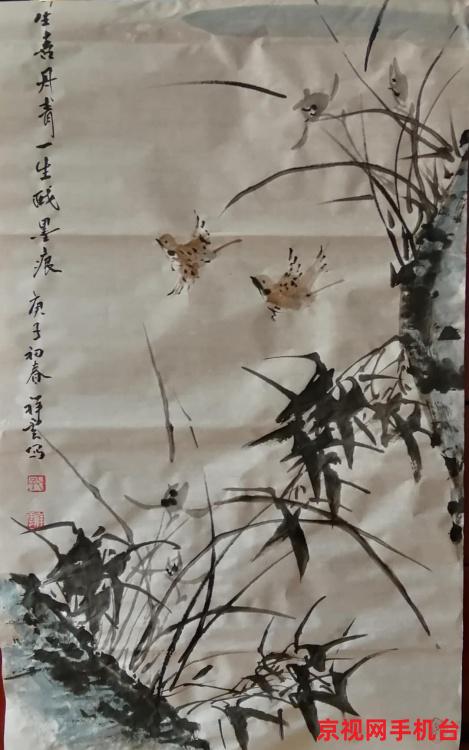 生喜丹青一生墨痕
庚子初春祥云写
京视网手机台